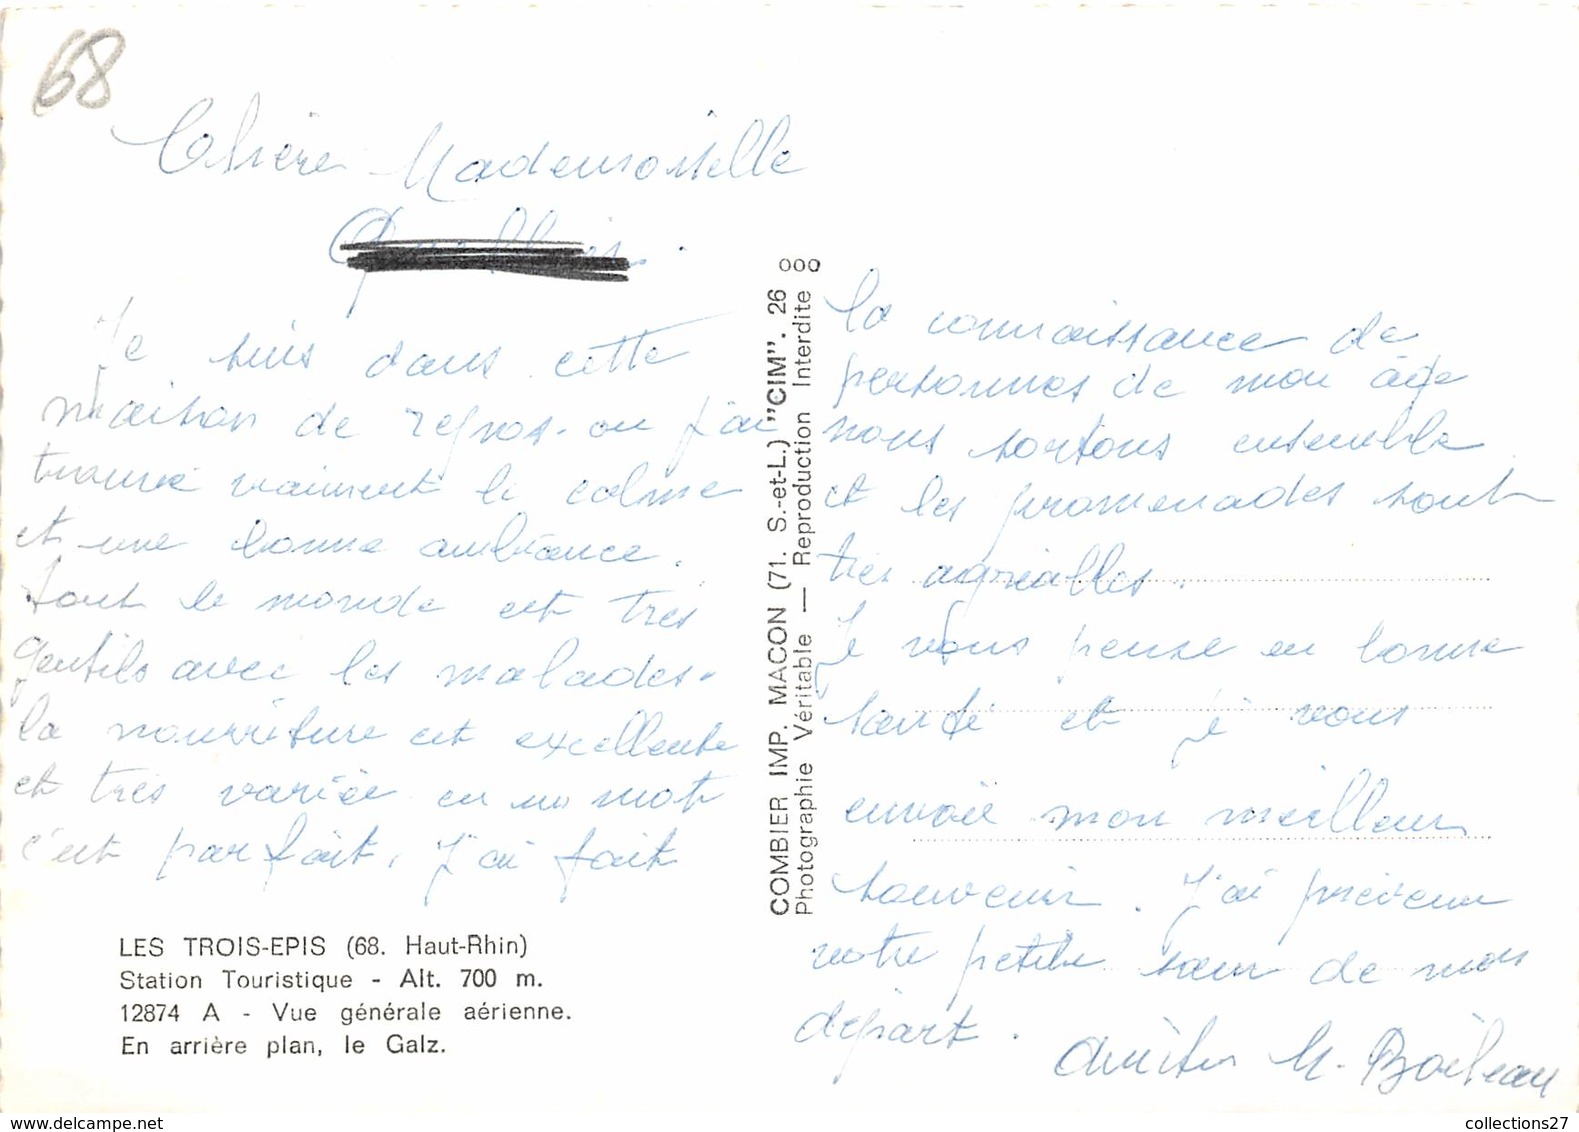 68
Chère Mademoiselle
Je suis dans cette
maison de repos. ou j'ai
trouvé vraiment le calme
et une bonne ambiance.
tout le monde est très
gentils avec les malades.
la nourriture est excellente
et très variée en un mot
c'est parfait, j'ai fait
LES TROIS-EPIS (68. Haut-Rhin)
Station Touristique - Alt. 700 m.
12874 A - Vue générale aérienne.
En arrière plan, le Galz.
COMBIER IMP. MACON (71. S.-et-L.) "CIM". 26 000
Photographie Véritable — Reproduction Interdite
la connaissance de
personnes de mon âge
nous sortons ensemble
et les promenades sont
très agréables.
Je vous pense en bonne
santé et je vous
envoie mon meilleur
souvenir. J'ai prévenu
votre petite sœur de mon
départ.
Amitiés M. Boileau
collections27